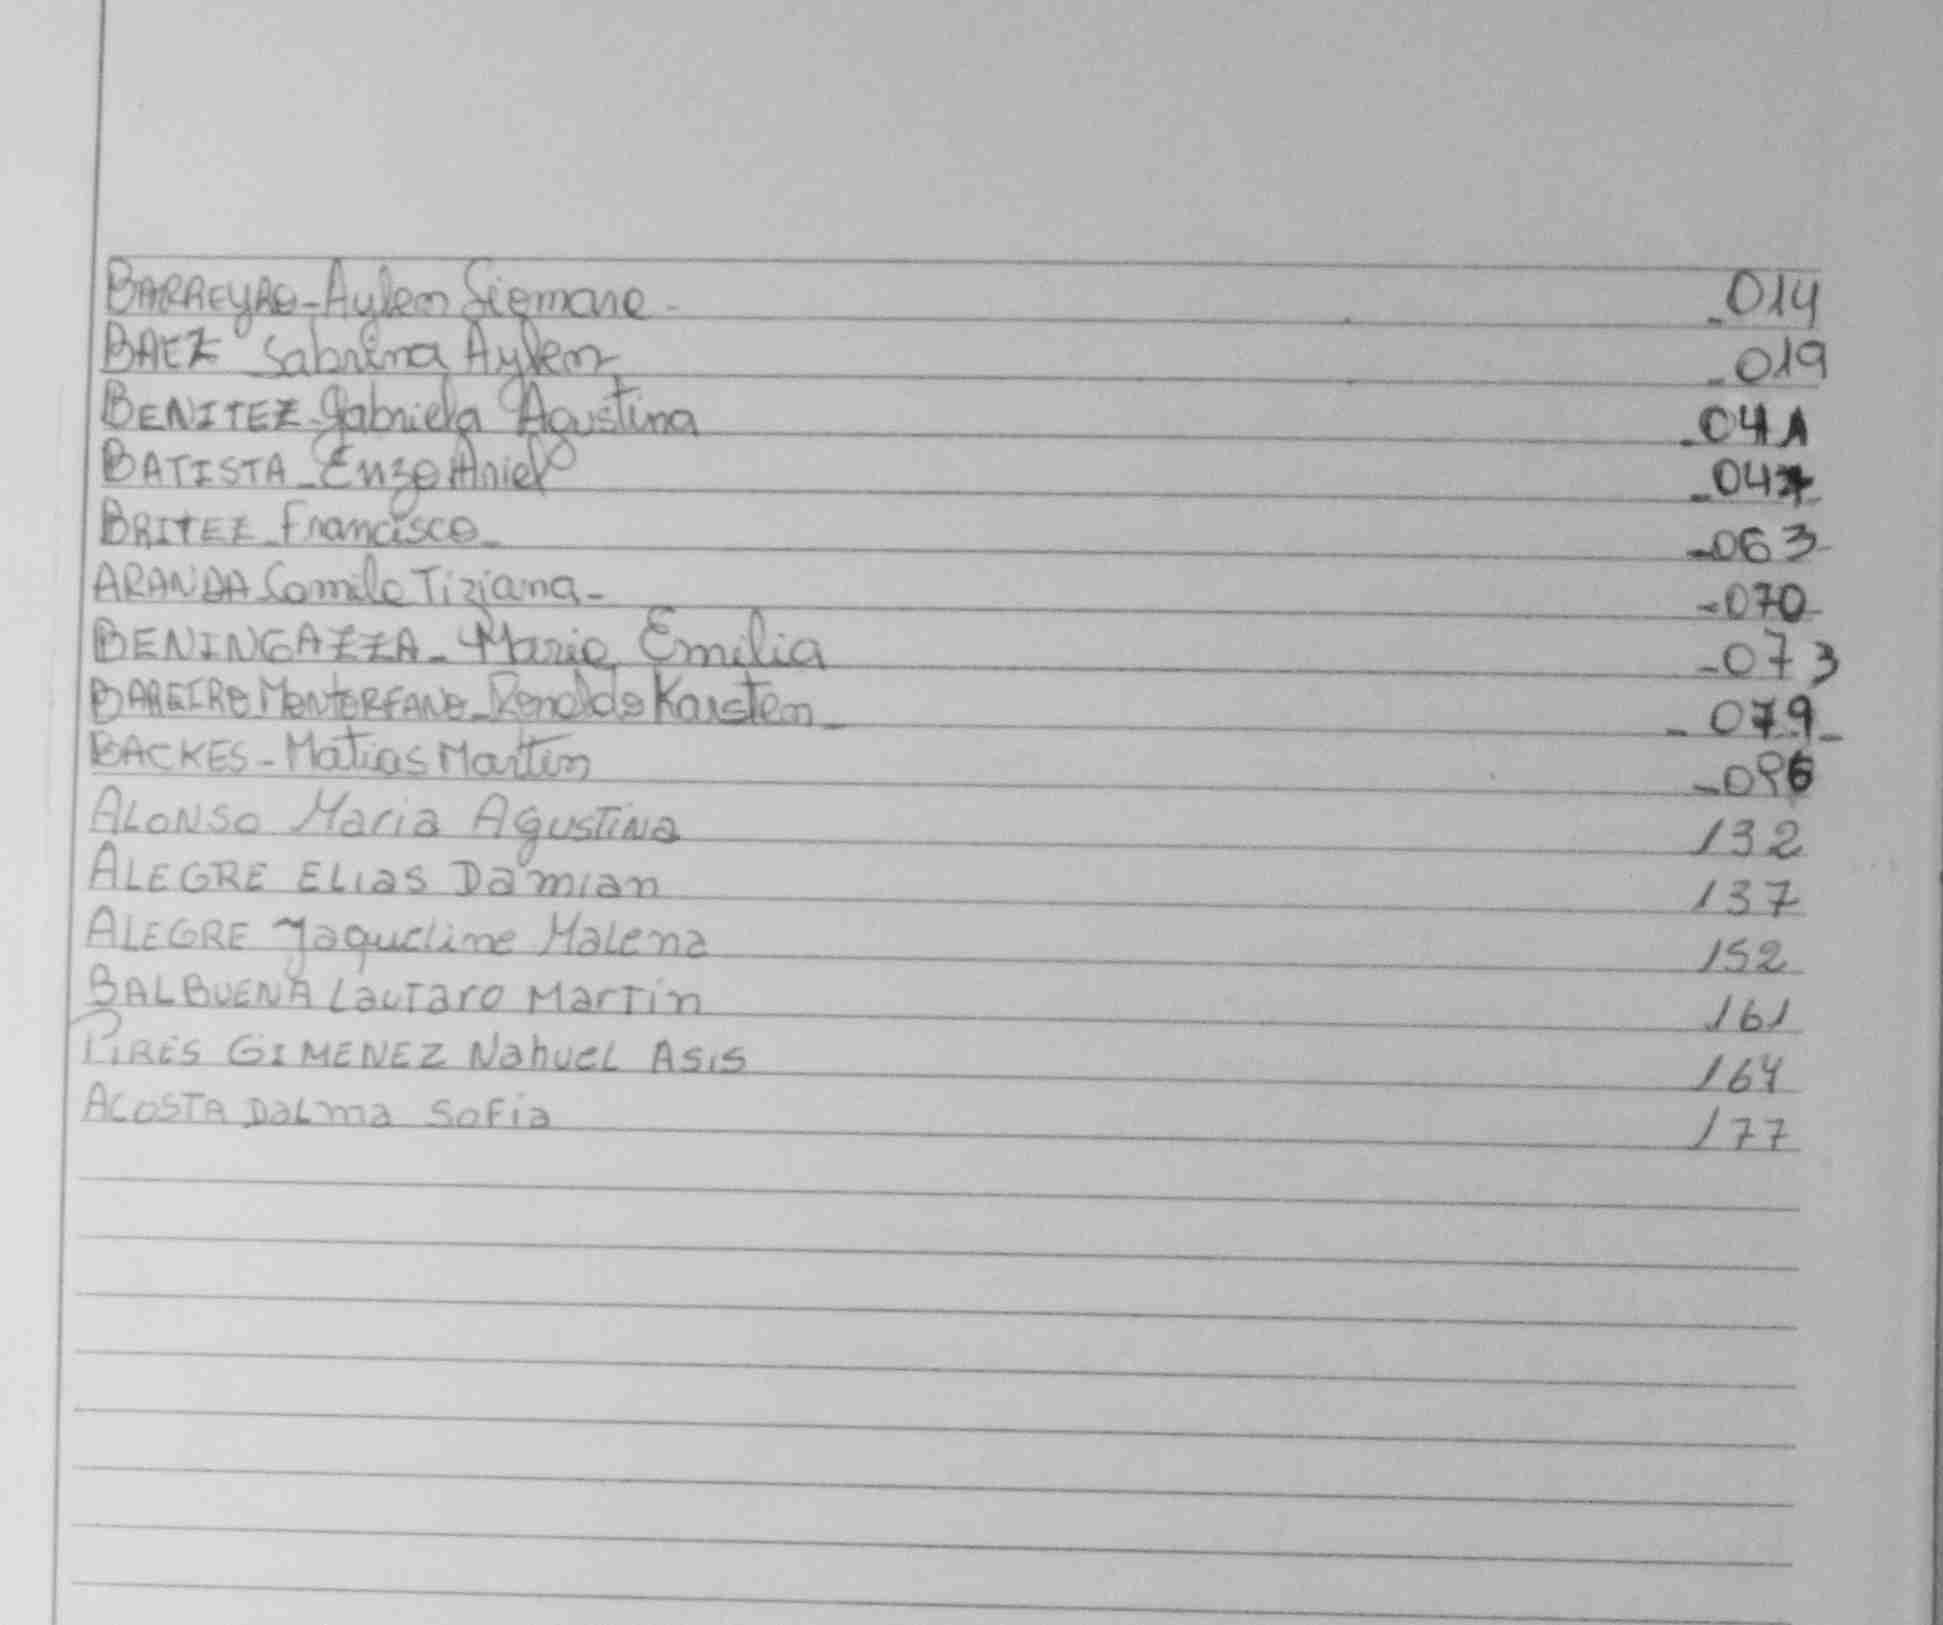 BARREYRO - Aylen Siomare - _014
BAEZ Sabrina Aylen _019
BENITEZ - Gabriela Agustina _041
BATISTA - Enzo Ariel _047
BRITEZ - Francisco - -063-
ARANDA Camila Tiziana - -070-
BENINGAZZA - Maria Emilia -073
BAREIRO MONTORFANO - Ronaldo Karsten - - 079 -
BACKES - Matias Martin -096
ALONSO Maria Agustina 132
ALEGRE ELias Damian 137
ALEGRE Jaqueline Malena 152
BALBUENA Lautaro Martin 161
PIRES GIMENEZ Nahuel Asis 164
ACOSTA Dalma Sofia 177